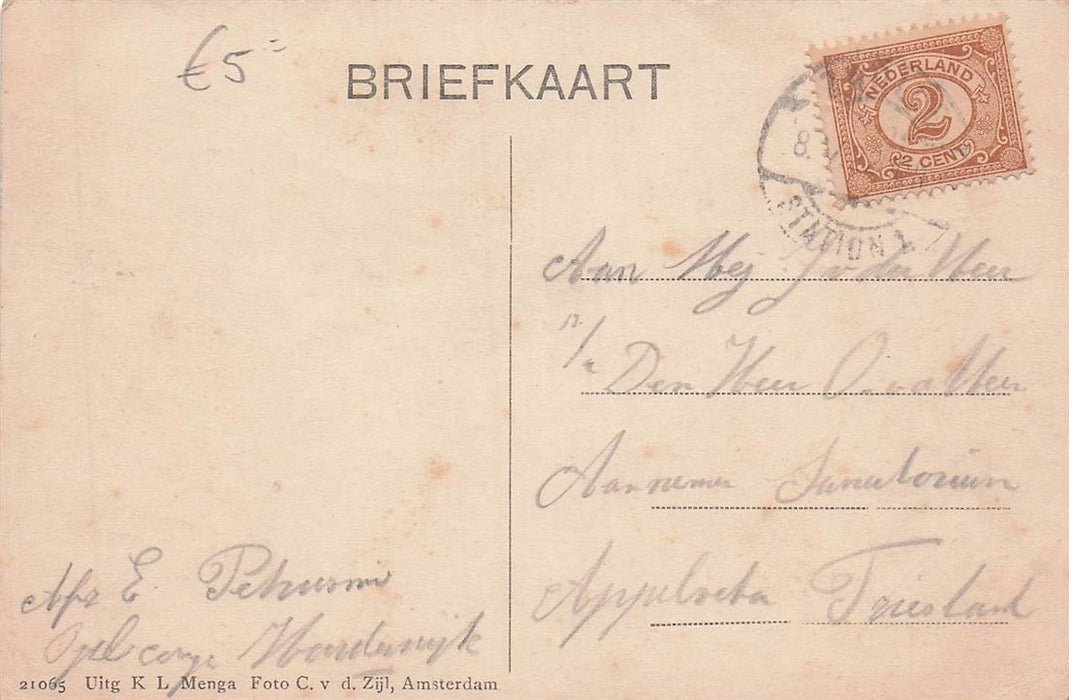 €5=
BRIEFKAART
NEDERLAND
2
2 CENT
8.
STATION 1
Aan Mej J v der Meer
p/a
Den Heer O. v d Meer
Aannemer Sanatorium
Appelscha Friesland
Afz E
Harderwijk
21065 Uitg K L Menga Foto C. v d. Zijl, Amsterdam